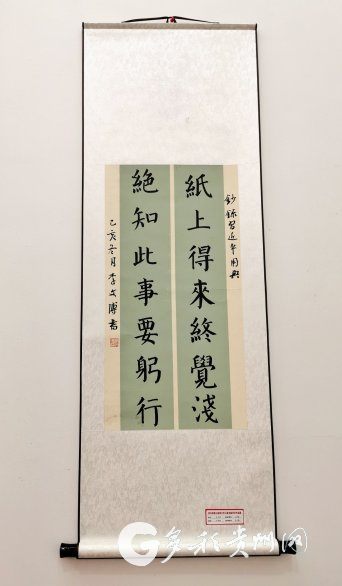 鈔錄習近平用典
紙上得來終覺淺
絕知此事要躬行
己亥冬月李文博書
多彩贵州网